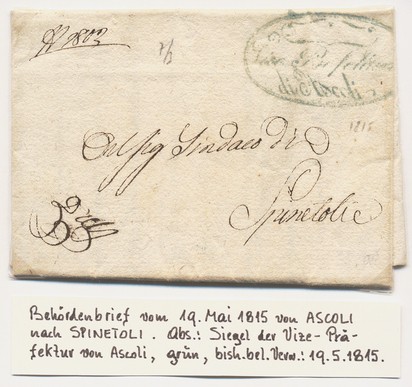 di Ascoli
1815
Al Sig Sindaco di
Spinetolie
Behördenbrief vom 19. Mai 1815 von ASCOLI
nach SPINETOLI. Abs.: Siegel der Vize-Prä-
fektur von Ascoli, grün, bish.bel.Verw.: 19.5.1815.